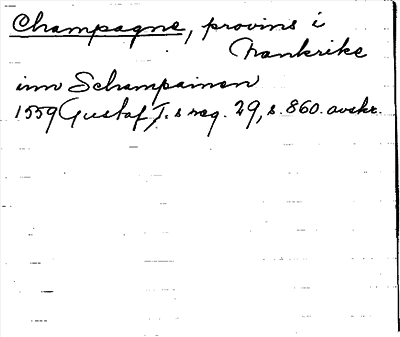 Champagne, provins i
Frankrike
inn Schampainen
1559 Gustaf I.s reg. 29, s. 860. avskr.